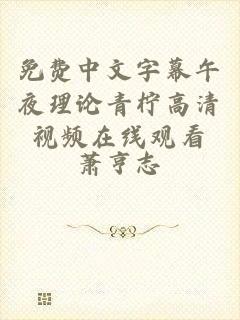 免费中文字幕午
夜理论青柠高清
视频在线观看
萧亨志